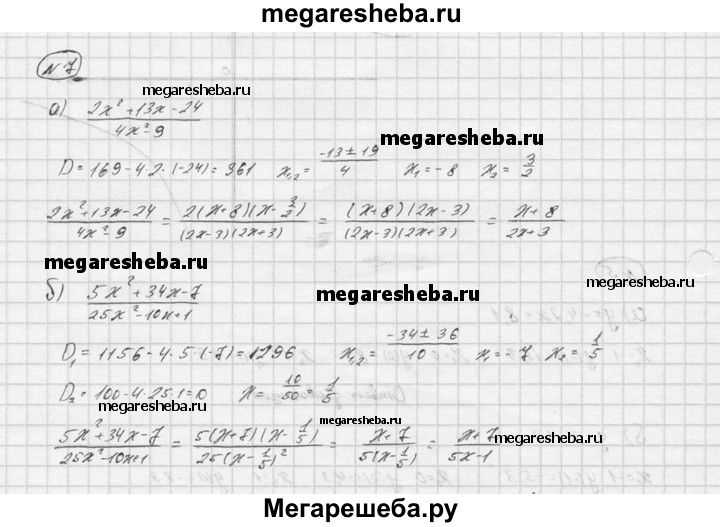 megaresheba.ru
N 7
megaresheba.ru
а) (2x² + 13x - 24)/(4x² - 9)
megaresheba.ru
D = 169 - 4·2·(-24) = 361 x₁,₂ = (-13 ± 19)/4 x₁ = -8 x₂ = 3/2
(2x² + 13x - 24)/(4x² - 9) = (2(x + 8)(x - 3/2))/((2x - 3)(2x + 3)) = ((x + 8)(2x - 3))/((2x - 3)(2x + 3)) = (x + 8)/(2x + 3)
megaresheba.ru
megaresheba.ru
б) (5x² + 34x - 7)/(25x² - 10x + 1)
D₁ = 1156 - 4·5·(-7) = 1296 x₁,₂ = (-34 ± 36)/10 x₁ = -7 x₂ = 1/5
D₂ = 100 - 4·25·1 = 0 x = 10/50 = 1/5
megaresheba.ru
(5x² + 34x - 7)/(25x² - 10x + 1) = (5(x + 7)(x - 1/5))/(25(x - 1/5)²) = (x + 7)/(5(x - 1/5)) = (x + 7)/(5x - 1)
megaresheba.ru
Мегарешеба.ру